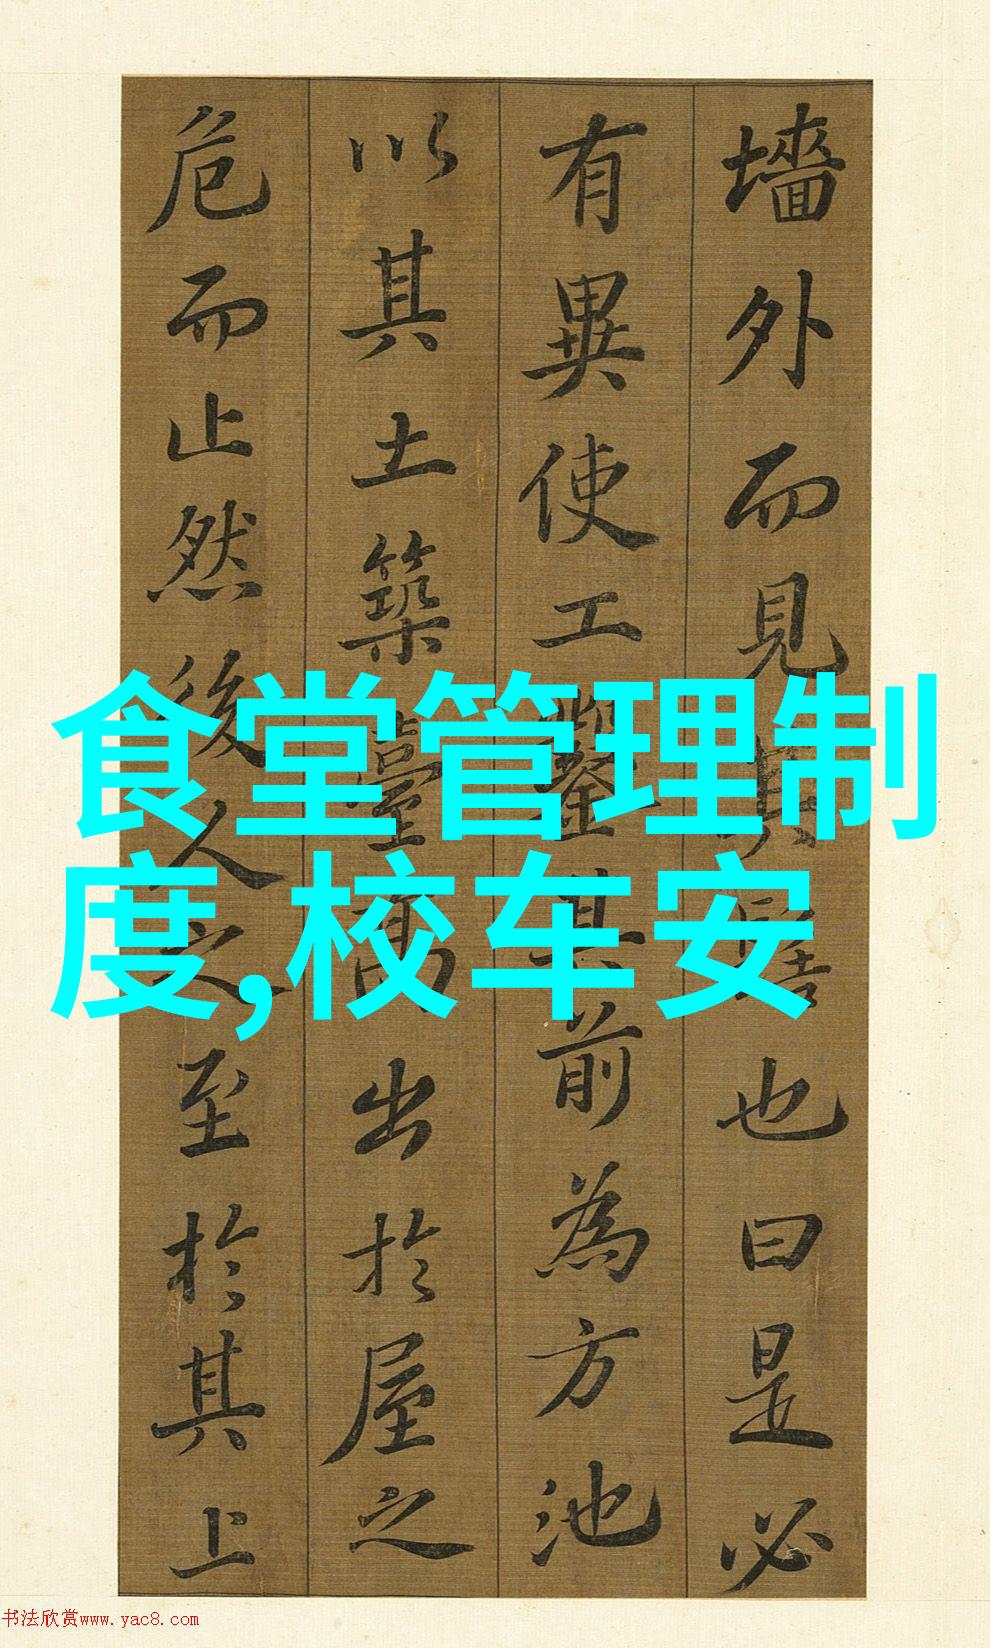 墻外而見其髻也曰是必
有異使工鑿其前為方池
以其土築臺高出於屋之
危而止然後人之至於其上
食堂管理制
度,校车安
书法欣赏www.yac8.com